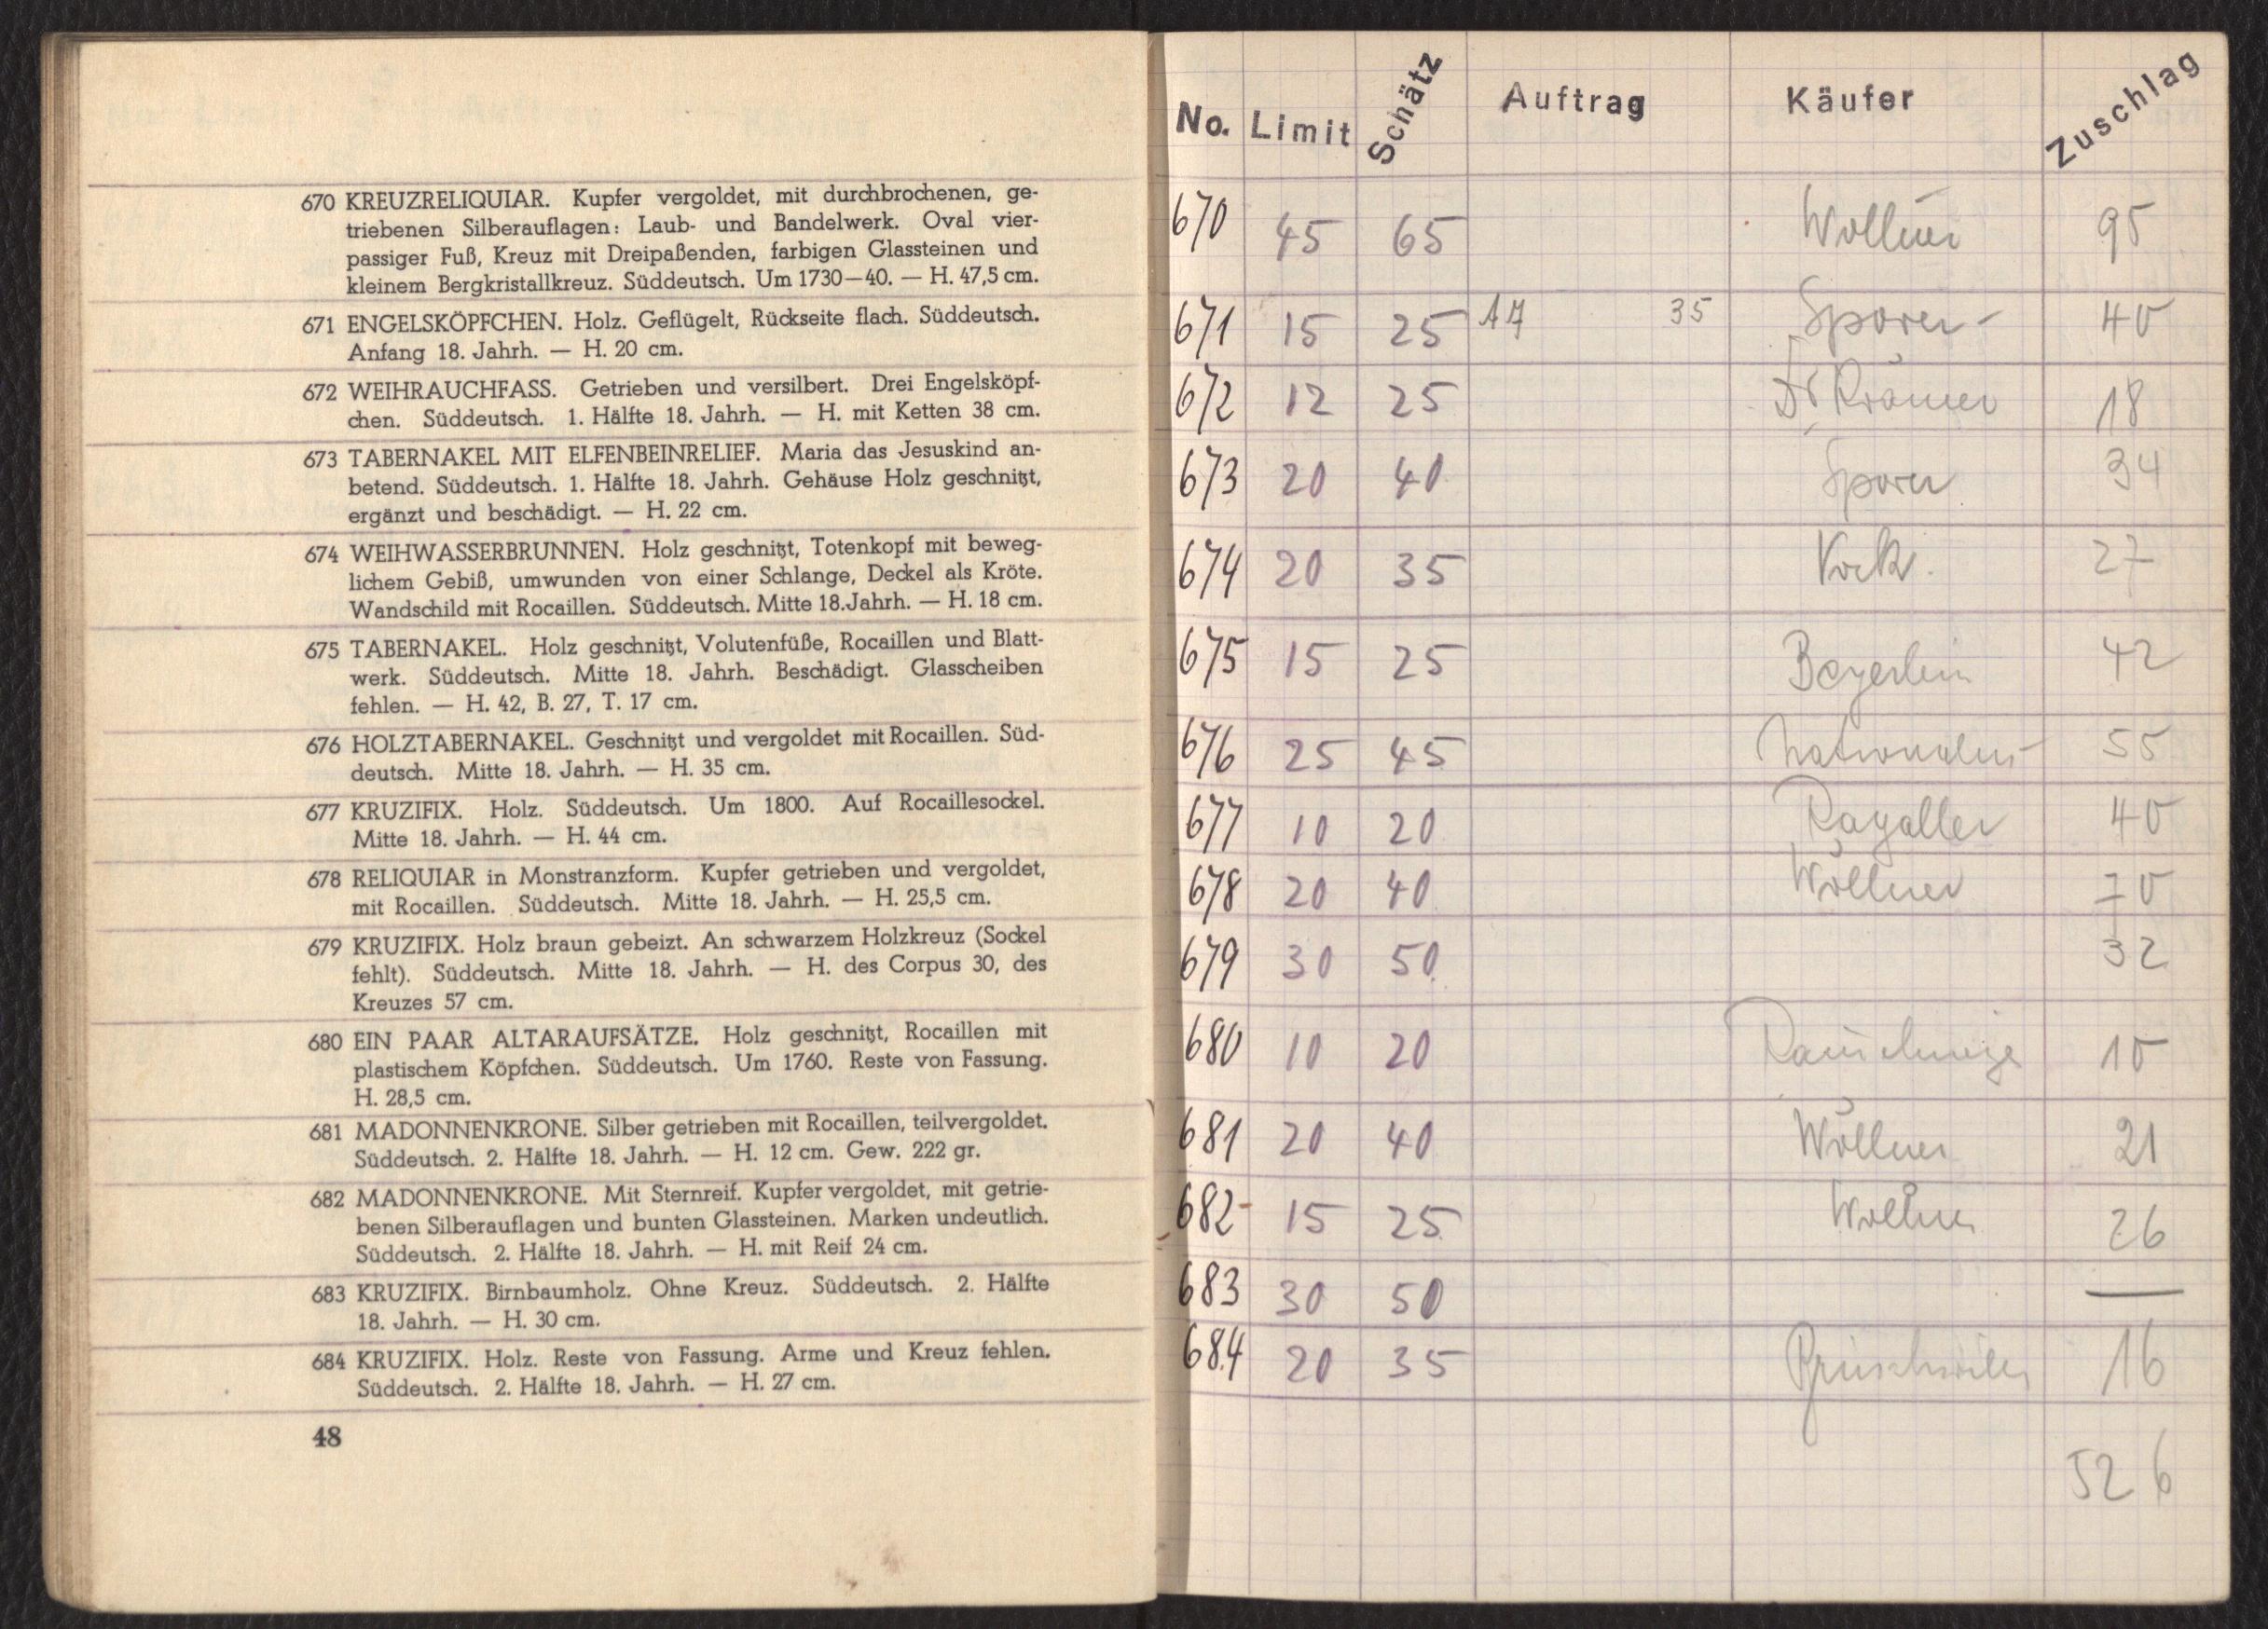 670 KREUZRELIQUIAR. Kupfer vergoldet, mit durchbrochenen, ge-
triebenen Silberauflagen: Laub- und Bandelwerk. Oval vier-
passiger Fuß, Kreuz mit Dreipaßenden, farbigen Glassteinen und
kleinem Bergkristallkreuz. Süddeutsch. Um 1730—40. — H. 47,5 cm.
671 ENGELSKÖPFCHEN. Holz. Geflügelt, Rückseite flach. Süddeutsch.
Anfang 18. Jahrh. — H. 20 cm.
672 WEIHRAUCHFASS. Getrieben und versilbert. Drei Engelsköpf-
chen. Süddeutsch. 1. Hälfte 18. Jahrh. — H. mit Ketten 38 cm.
673 TABERNAKEL MIT ELFENBEINRELIEF. Maria das Jesuskind an-
betend. Süddeutsch. 1. Hälfte 18. Jahrh. Gehäuse Holz geschnitzt,
ergänzt und beschädigt. — H. 22 cm.
674 WEIHWASSERBRUNNEN. Holz geschnitzt, Totenkopf mit beweg-
lichem Gebiß, umwunden von einer Schlange, Deckel als Kröte.
Wandschild mit Rocaillen. Süddeutsch. Mitte 18.Jahrh. — H. 18 cm.
675 TABERNAKEL. Holz geschnitzt, Volutenfüße, Rocaillen und Blatt-
werk. Süddeutsch. Mitte 18. Jahrh. Beschädigt. Glasscheiben
fehlen. — H. 42, B. 27, T. 17 cm.
676 HOLZTABERNAKEL. Geschnitzt und vergoldet mit Rocaillen. Süd-
deutsch. Mitte 18. Jahrh. — H. 35 cm.
677 KRUZIFIX. Holz. Süddeutsch. Um 1800. Auf Rocaillesockel.
Mitte 18. Jahrh. — H. 44 cm.
678 RELIQUIAR in Monstranzform. Kupfer getrieben und vergoldet,
mit Rocaillen. Süddeutsch. Mitte 18. Jahrh. — H. 25,5 cm.
679 KRUZIFIX. Holz braun gebeizt. An schwarzem Holzkreuz (Sockel
fehlt). Süddeutsch. Mitte 18. Jahrh. — H. des Corpus 30, des
Kreuzes 57 cm.
680 EIN PAAR ALTARAUFSÄTZE. Holz geschnitzt, Rocaillen mit
plastischem Köpfchen. Süddeutsch. Um 1760. Reste von Fassung.
H. 28,5 cm.
681 MADONNENKRONE. Silber getrieben mit Rocaillen, teilvergoldet.
Süddeutsch. 2. Hälfte 18. Jahrh. — H. 12 cm. Gew. 222 gr.
682 MADONNENKRONE. Mit Sternreif. Kupfer vergoldet, mit getrie-
benen Silberauflagen und bunten Glassteinen. Marken undeutlich.
Süddeutsch. 2. Hälfte 18. Jahrh. — H. mit Reif 24 cm.
683 KRUZIFIX. Birnbaumholz. Ohne Kreuz. Süddeutsch. 2. Hälfte
18. Jahrh. — H. 30 cm.
684 KRUZIFIX. Holz. Reste von Fassung. Arme und Kreuz fehlen.
Süddeutsch. 2. Hälfte 18. Jahrh. — H. 27 cm.
48
No. Limit Schätz Auftrag Käufer Zuschlag
670 45 65 Wöllner 95
671 15 25 35 Sporer 40
672 12 25 Dr Krämer 18
673 20 40 Sporer 34
674 20 35 27
675 15 25 Beyerlein 42
676 25 45 55
677 10 20 Ragaller 40
678 20 40 Wöllner 70
679 30 50 32
680 10 20 10
681 20 40 Wöllner 21
682- 15 25 Wöllner 26
683 30 50 —
684 20 35 16
526